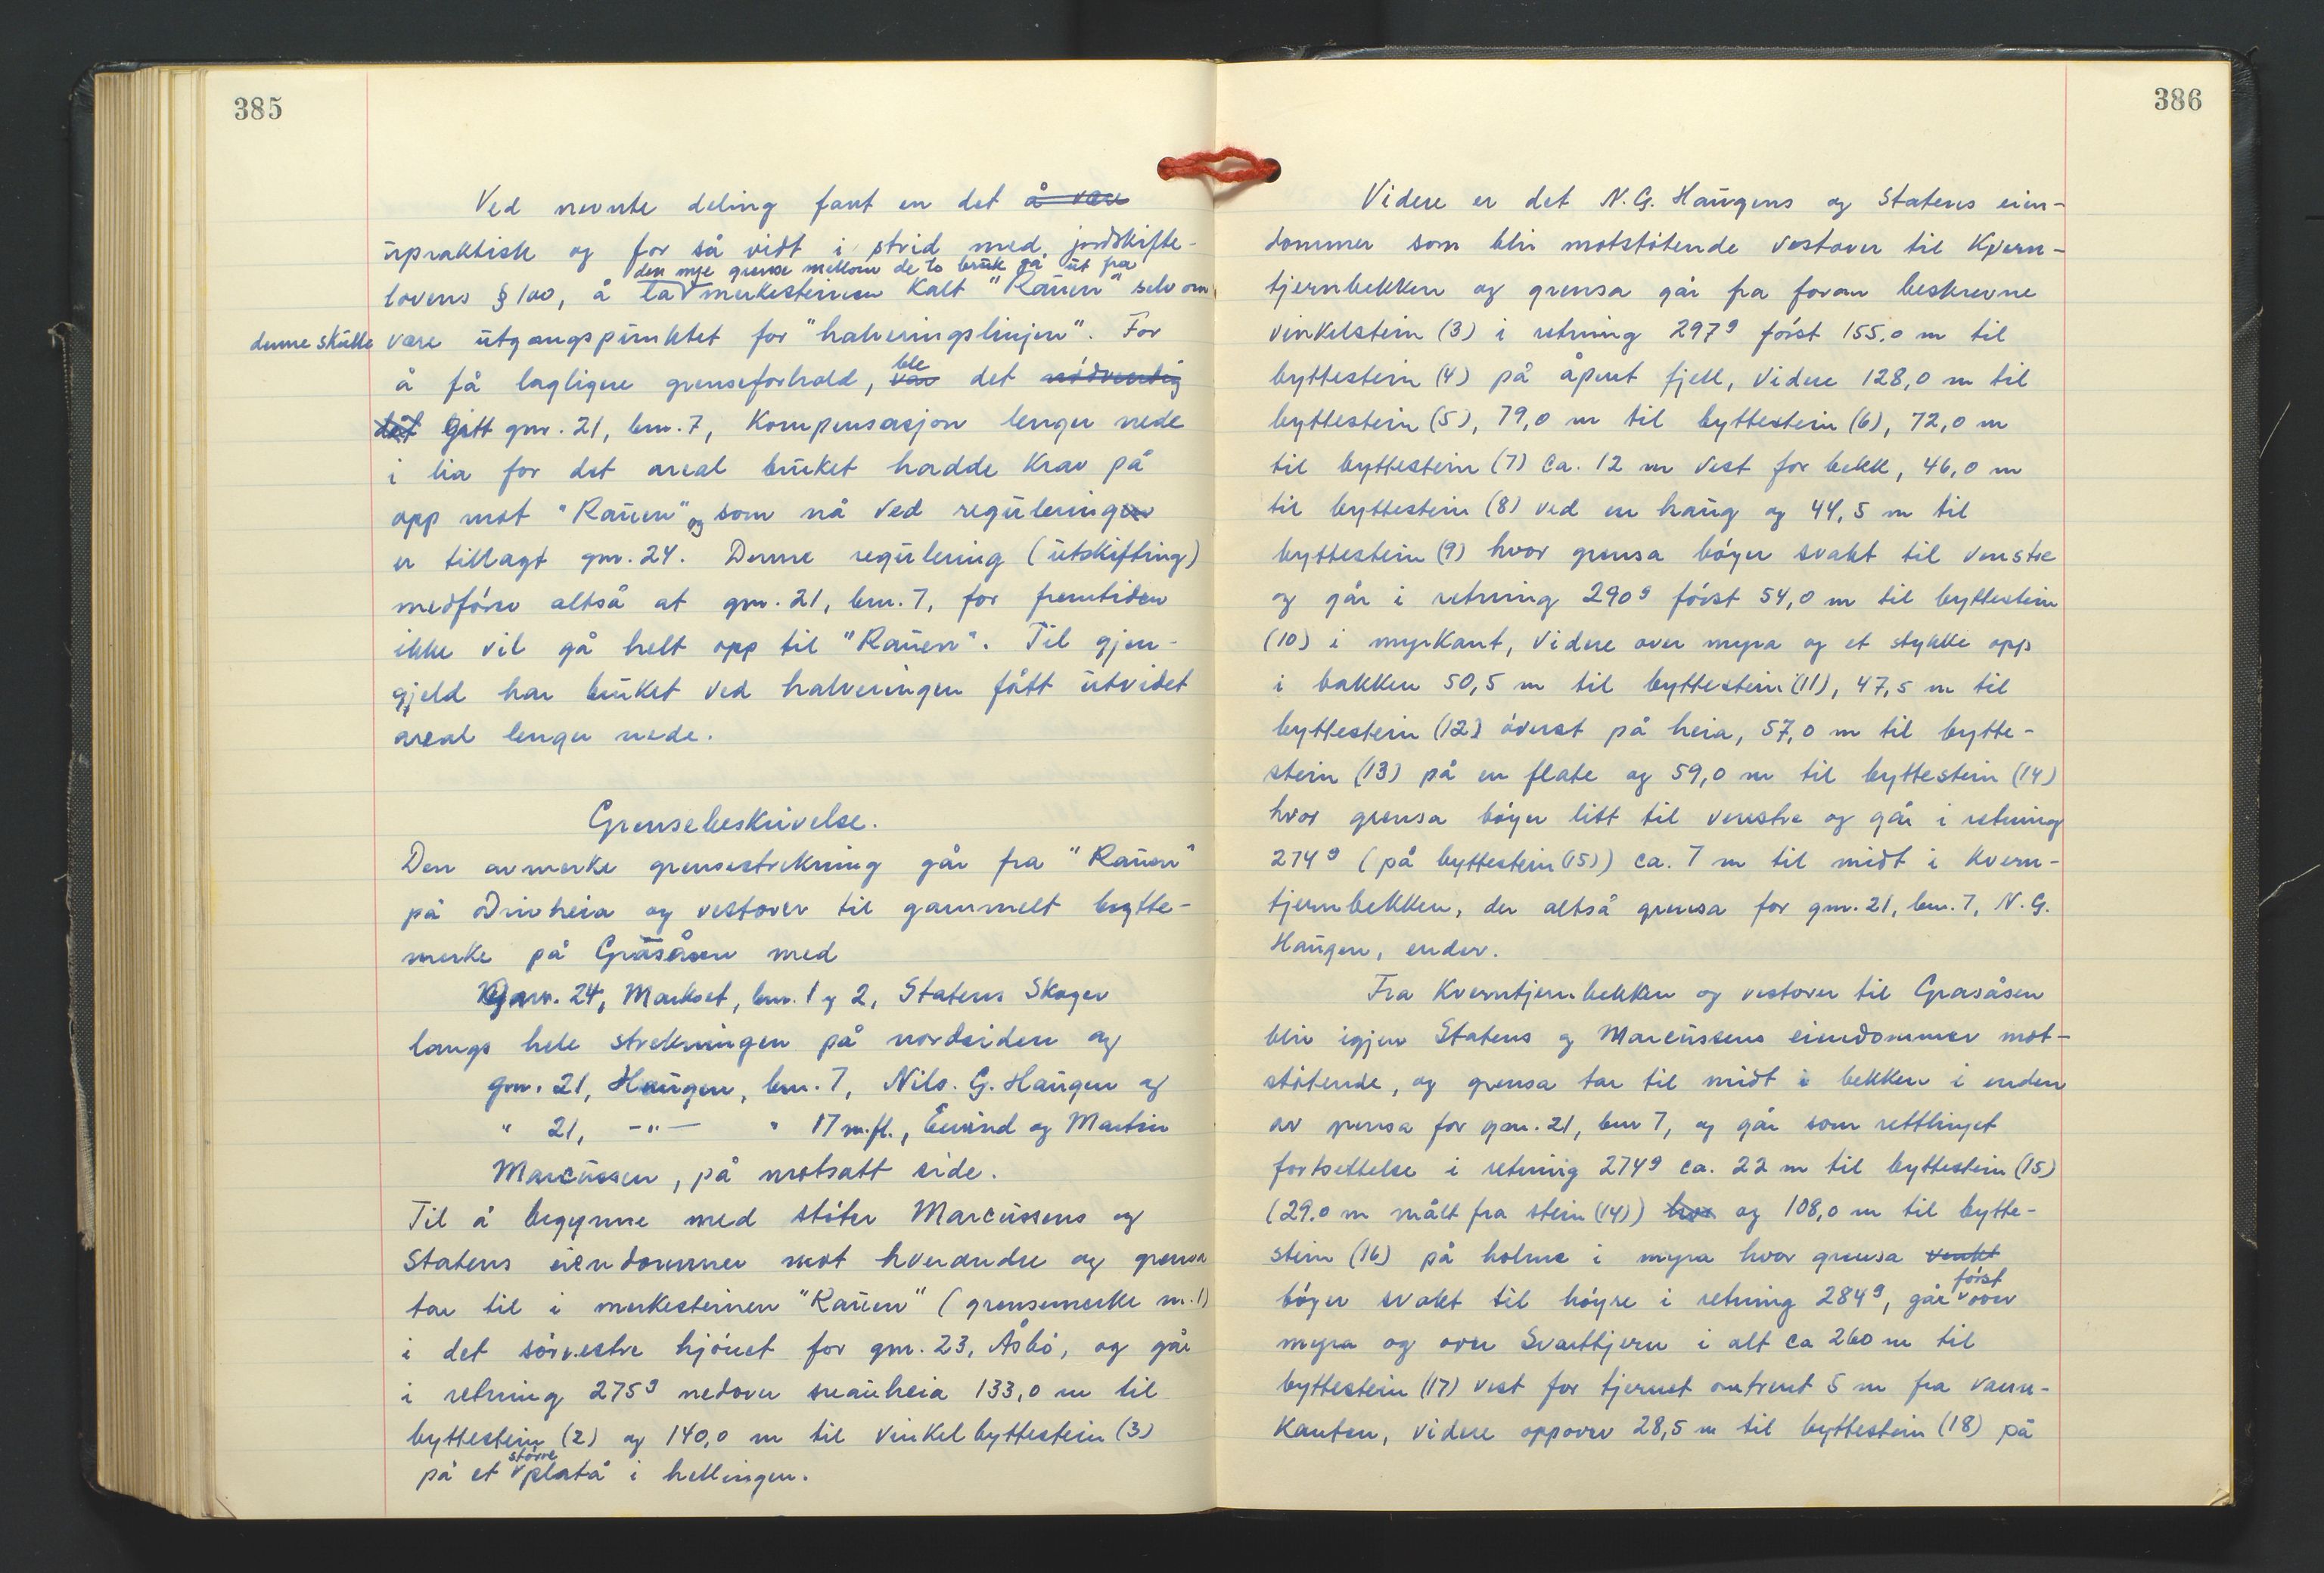 385
Ved nevnte deling fant en det å være
upraktisk og for så vidt i strid med jordskifte-
den nye grense mellom de to bruk gå ut fra
lovens § 100, å la merkesteinen kalt "Rauen" selv om
denne skulle være utgangspunktet for "halveringslinjen". For
å få lagligere grenseforhold, var ble det nødvendig
det Gitt gnr. 21, bnr. 7, kompensasjon lenger nede
i lia for det areal bruket hadde krav på
opp mot "Rauen" og som nå ved reguleringen
er tillagt gnr. 24. Denne regulering (utskifting)
medfører altså at gnr. 21, bnr. 7, for fremtiden
ikke vil gå helt opp til "Rauen". Til gjen-
gjeld har bruket ved halveringen fått utvidet
areal lenger nede.
Grensebeskrivelse.
Den avmerke grensestrekning går fra "Rauen"
på Drivheia og vestover til gammelt bytte-
merke på Gråsåsen med
Gnr. 24, Markset, bnr. 1 og 2, Statens Skoger
langs hele strekningen på nordsiden og
gnr. 21, Haugen, bnr. 7, Nils. G. Haugen og
" 21, -"- " 17 m.fl., Eivind og Martin
Marcussen, på motsatt side.
Til å begynne med støter Marcussens og
Statens eiendommer mot hverandre og grensa
tar til i merkesteinen "Rauen" (grensemerke nr. 1)
i det sørvestre hjørnet for gnr. 23, Åsbø, og går
i retning 275g nedover snauheia 133,0 m til
byttestein (2) og 140,0 m til vinkelbyttestein (3)
på et større platå i hellingen.
386
Videre er det N. G. Haugens og Statens eien-
dommer som blir motstøtende vestover til Kvern-
tjernbekken og grensa går fra foran beskrevne
vinkelstein (3) i retning 297g først 155,0 m til
byttestein (4) på åpent fjell, videre 128,0 m til
byttestein (5), 79,0 m til byttestein (6), 72,0 m
til byttestein (7) ca. 12 m vest for bekk, 46,0 m
til byttestein (8) ved en haug og 44,5 m til
byttestein (9) hvor grensa bøyer svakt til venstre
og går i retning 290g først 54,0 m til byttestein
(10) i myrkant, videre over myra og et stykke opp
i bakken 50,5 m til byttestein (11), 47,5 m til
byttestein (12) øverst på heia, 57,0 m til bytte-
stein (13) på en flate og 59,0 m til byttestein (14)
hvor grensa bøyer litt til venstre og går i retning
274g (på byttestein (15)) ca. 7 m til midt i Kvern-
tjernbekken, der altså grensa for gnr. 21, bnr. 7, N. G.
Haugen, ender.
Fra Kverntjernbekken og vestover til Grasåsen
blir igjen Statens og Marcussens eiendommer mot-
støtende, og grensa tar til midt i bekken i enden
av grensa for gnr. 21, bnr 7, og går som rettlinjet
fortsettelse i retning 274g ca. 22 m til byttestein (15)
(29.0 m målt fra stein (14)) hvor og 108,0 m til bytte-
stein (16) på holme i myra hvor grensa
bøyer svakt til høyre i retning 284g, går først over
myra og over Svarttjern i alt ca 260 m til
byttestein (17) vest for tjernet omtrent 5 m fra vann-
kanten, videre oppover 28,5 m til byttestein (18) på